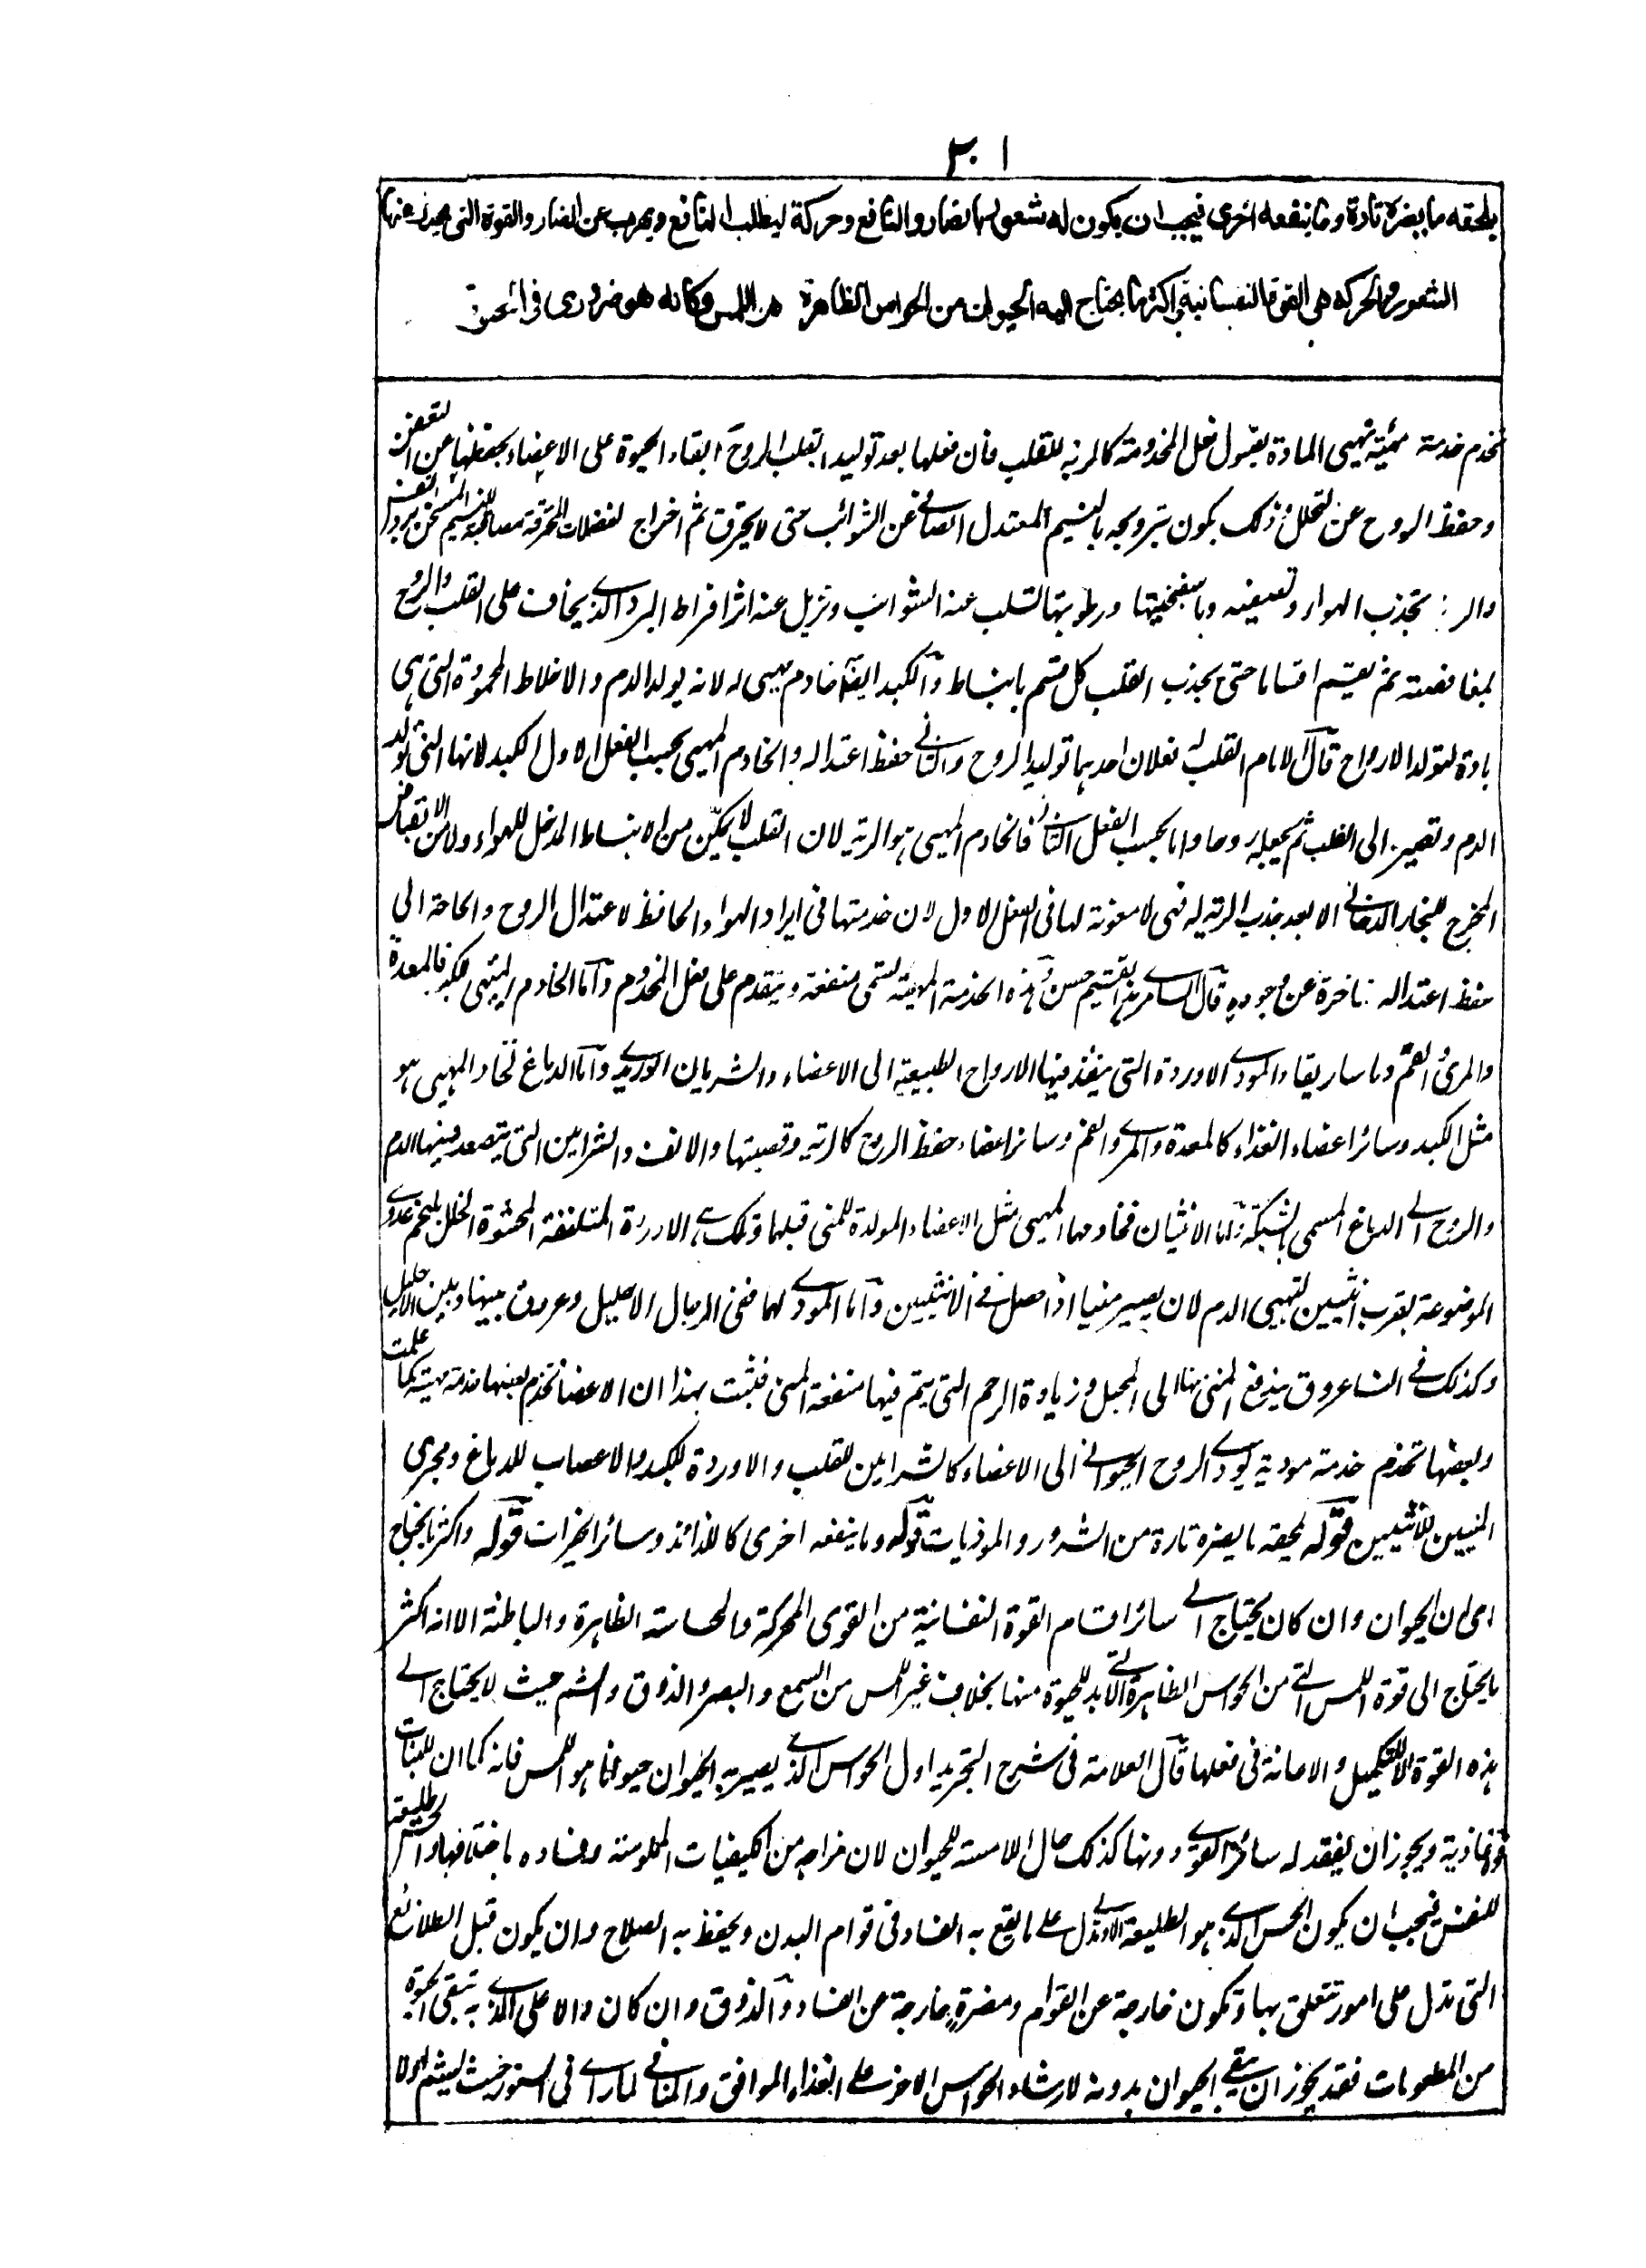 ٣٠١
يلحقه ما يضره تارة وما ينفعه اخرى فيجب ان يكون له شعور بالضار والنافع وحركة ليطلب النافع ويهرب عن الضار والقوة التى يحدث عنها
الشعور والحركة هى القوة النفسانية واكثر ما يحتاج اليه الحيوان من الحواس الظاهرة هو اللمس وكانه هو ضرورى فى
تخدم خدمة مهيئة تهيى المادة بقبول فعل المخدومة كالرية للقلب فان فعلها بعد توليد القلب الروح ابقاء الحيوة على الاعضاء بحفظها عن التعفن
وحفظ الروح عن التحلل وذلك يكون بترويحه بالنسيم المعتدل الصافى عن الشوائب حتى لا يحترق ثم اخراج الفضلات المحترقة
تجذب الهواء وتصفيه وباسفنجيتها ورطوبتها تسلب عنه الشوائب وتزيل عنه اثر افراط البرد الذى يخاف على القلب والروح
ثم تقسيم اقساما حتى يجذب القلب كل قسم بانبساط والكبد ايضا خادم مهيى له لانه يولد الدم والاخلاط المحمودة التى هى
مادة لتولد الارواح قال الامام القلب له فعلان احدهما توليد الروح والثانى حفظ اعتداله والخادم المهيى بحسب الفعل الاول الكبد لانها التى تولد
الدم وتصيره الى القلب ثم يجعله روحا واما بحسب الفعل الثانى فالخادم المهيى هو الرية لان القلب لا يتمكن من الانبساط المدخل للهواء ولا من الانقباض
المخرج للبخار الدخانى الا بعد جذب الرية له فهى لا معونة لها فى الفعل الاول لان خدمتها فى ايراد الهواء الحافظ لاعتدال الروح والحاجة الى
حفظ اعتداله متاخرة عن وجوده قال السامرى هذا تقسيم حسن وهذه الخدمة المهيئة تسمى منفعة وتتقدم على فعل المخدوم واما الخادم المهيى للكبد فالمعدة
والمرى والفم وماساريقاء والمودى الاوردة التى ينفذ فيها الارواح الطبيعية الى الاعضاء والشريان الوريدى واما الدماغ فخادمه المهيى هو
مثل الكبد وسائر اعضاء الغذاء كالمعدة والمرى والفم وسائر اعضاء حفظ الروح كالرية وقصبتها والانف والشرايين التى يتصعد فيها الدم
والروح الى الدماغ المسمى بالشبكة واما الانثيان فخادمها المهيى مثل الاعضاء المولدة للمنى قبلها وتلك هى الاوردة المتلففة المحشوة الخلل بلحم غددى
الموضوعة بقرب انثيين لتهيى الدم لان يصير منيا اذا حصل فى الانثيين واما المودى لهما ففى الرجال الاحليل وعروق بينها وبين الاحليل
وكذلك فى النساء عروق يندفع المنى منها الى المحبل وزيادة الرحم التى يتم فيها منفعة المنى فثبت بهذا ان الاعضاء تخدم بعضها خدمة مهيئة كما علمت
وبعضها تخدم خدمة مودية يودى الروح الحيوانى الى الاعضاء كالشرايين للقلب والاوردة للكبد والاعصاب للدماغ ومجرى
المنيين للانثيين قوله يلحقه ما يضره تارة من الشرور والموذيات قوله وما ينفعه اخرى كاللذائذ وسائر الخيرات قوله واكثر ما يحتاج
اى ان الحيوان وان كان يحتاج الى سائر اقسام القوة النفسانية من القوى المحركة والحساسة الظاهرة والباطنة الا انه اكثر
ما يحتاج الى قوة اللمس التى من الحواس الظاهرة التى لا بد للحيوة منها بخلاف غير اللمس من السمع والبصر والذوق والشم حيث لا يحتاج الى
هذه القوة الا للتكميل والاعانة فى فعلها قال العلامة فى شرح التجريد اول الحواس الذى يصير به الحيوان حيوانا هو اللمس فانه كما ان للنبات
قوة غاذية ويجوز ان يفقد له سائر القوى دونها كذلك حال اللامسة للحيوان لان مزاجه من الكيفيات الملموسة وفساده باختلافها والحس طليعة
للنفس فيجب ان يكون الحس الذى هو الطليعة الاولى تدل على ما يقع به الفساد فى قوام البدن ويحفظ به الصلاح وان يكون قبل الطلائع
التى تدل على امور تتعلق بها وتكون خارجة عن القوام ومضرة خارجة عن الفساد والذوق وان كان دالا على الذى به تبقى الحيوة
من المطعومات فقد يجوز ان يبقى الحيوان بدونه لارشاد الحواس الاخر على الغذاء الموافق والمنافى